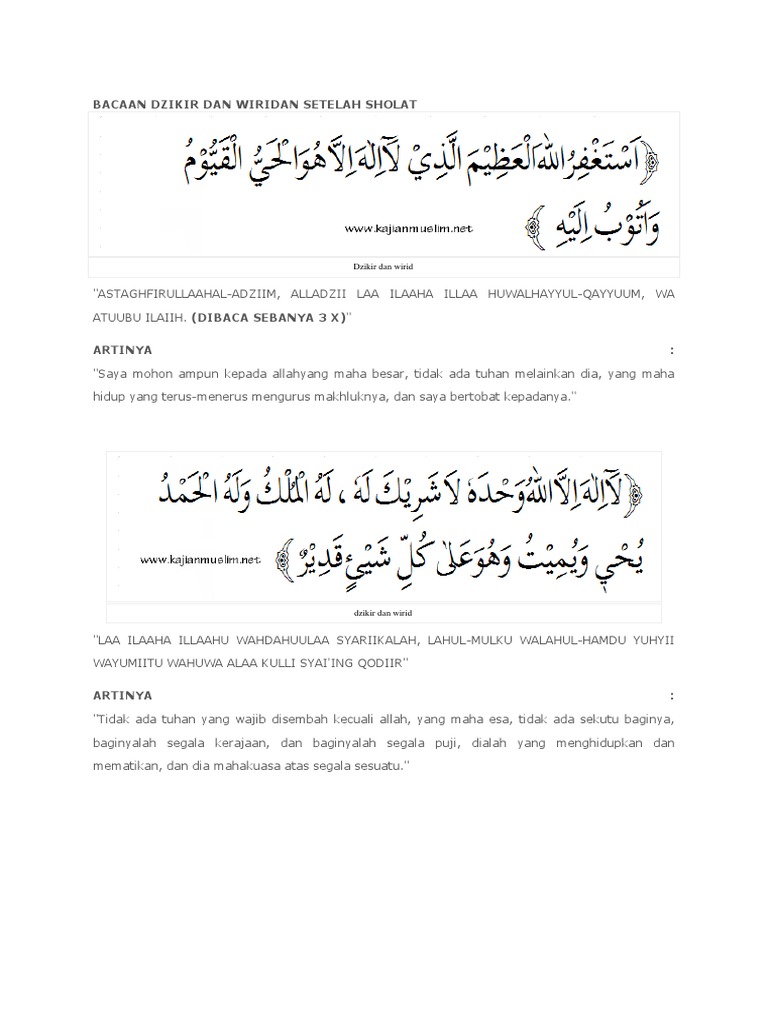 BACAAN DZIKIR DAN WIRIDAN SETELAH SHOLAT
﴿اَسْتَغْفِرُاللهَ الْعَظِيْمَ الَّذِيْ لَآاِلٰهَ اِلَّا هُوَالْحَيُّ الْقَيُّوْمُ
وَأَتُوْبُ اِلَيْهِ ﴾
www.kajianmuslim.net
Dzikir dan wirid
"ASTAGHFIRULLAAHAL-ADZIIM, ALLADZII LAA ILAAHA ILLAA HUWALHAYYUL-QAYYUUM, WA
ATUUBU ILAIIH. (DIBACA SEBANYA 3 X)"
ARTINYA :
"Saya mohon ampun kepada allahyang maha besar, tidak ada tuhan melainkan dia, yang maha
hidup yang terus-menerus mengurus makhluknya, dan saya bertobat kepadanya."
﴿لَآاِلٰهَ اِلَّااللهُ وَحْدَهٗ لَاشَرِيْكَ لَهٗ ، لَهُ الْمُلْكُ وَلَهُ الْحَمْدُ
يُحْيِ وَيُمِيْتُ وَهُوَعَلٰى كُلِّ شَيْئٍ قَدِيْرٌ ﴾
www.kajianmuslim.net
dzikir dan wirid
"LAA ILAAHA ILLAAHU WAHDAHUULAA SYARIIKALAH, LAHUL-MULKU WALAHUL-HAMDU YUHYII
WAYUMIITU WAHUWA ALAA KULLI SYAI'ING QODIIR"
ARTINYA :
"Tidak ada tuhan yang wajib disembah kecuali allah, yang maha esa, tidak ada sekutu baginya,
baginyalah segala kerajaan, dan baginyalah segala puji, dialah yang menghidupkan dan
mematikan, dan dia mahakuasa atas segala sesuatu."